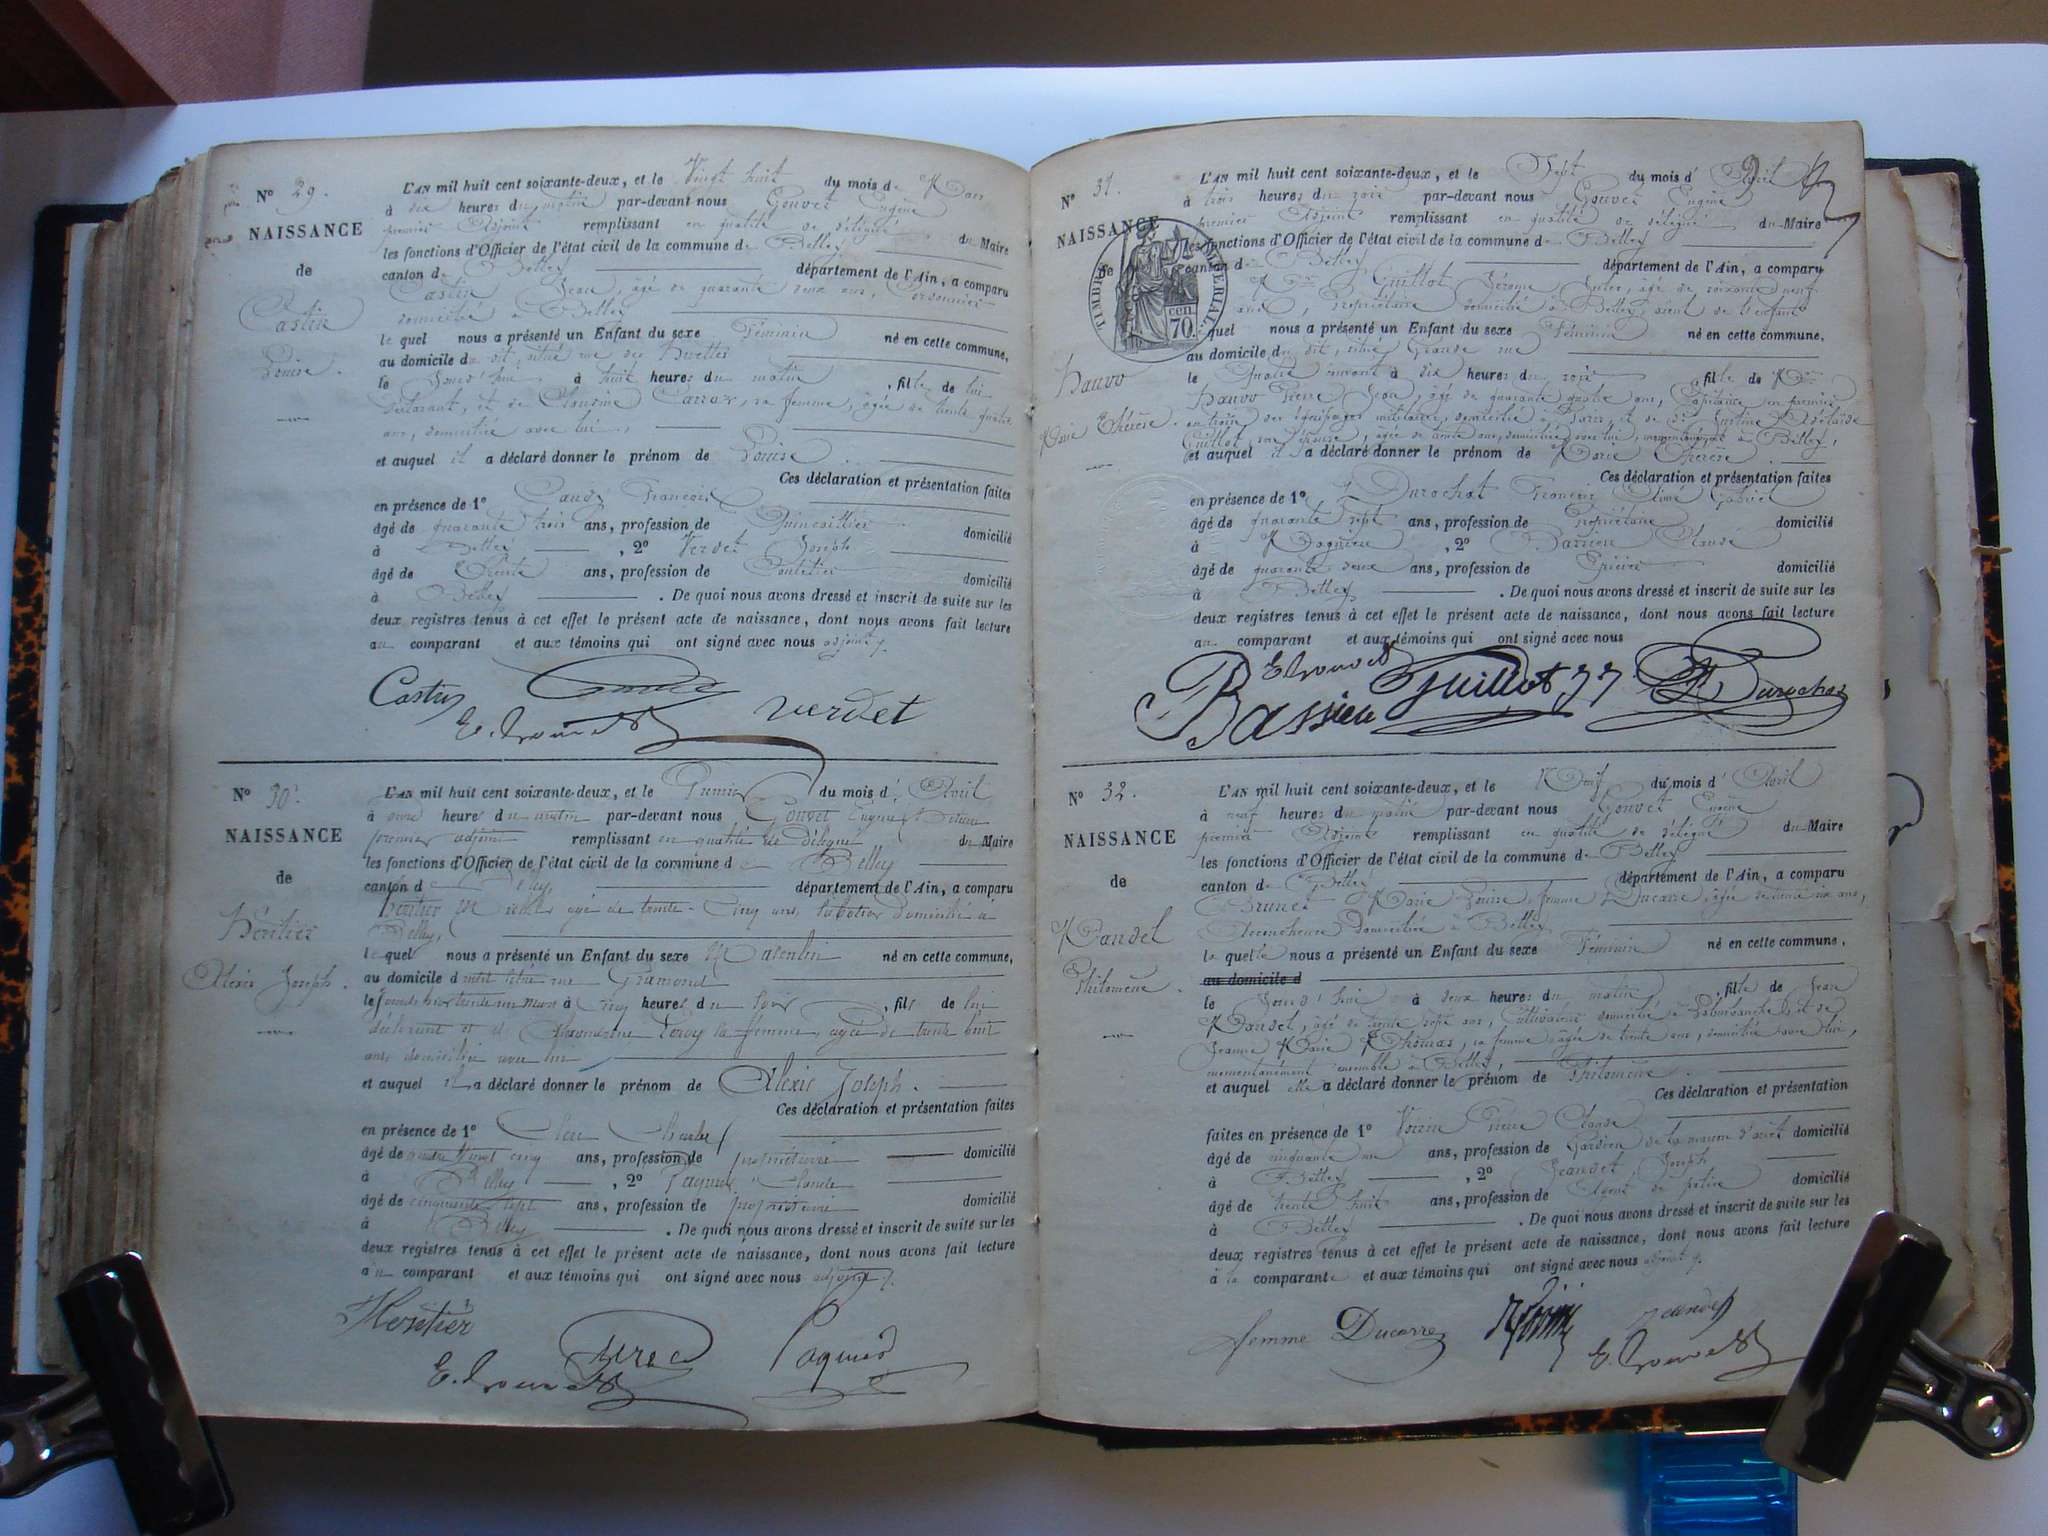 N° 29.
NAISSANCE
de
Castin
Louise.
L'AN mil huit cent soixante-deux, et le Vingt huit du mois de Mars
à dix heures du matin par-devant nous Gouvet Eugène
premier Adjoint remplissant en qualité de délégué du Maire
les fonctions d'Officier de l'état civil de la commune de Belley
canton de Belley département de l'Ain, a comparu
Castin Jean, âgé de quarante deux ans, Cordonnier
domicilié à Belley
le quel nous a présenté un Enfant du sexe Féminin né en cette commune,
au domicile du dit, situé rue des
le Jourd'hui à huit heures du matin, fille de lui
déclarant, et de Claudine sa femme, âgée de trente quatre
ans, domiciliée avec lui,
et auquel il a déclaré donner le prénom de Louise.
Ces déclaration et présentation faites
en présence de 1° François
âgé de quarante trois ans, profession de Quincaillier domicilié
à Belley, 2° Verdet Joseph
âgé de Trente ans, profession de domicilié
à Belley. De quoi nous avons dressé et inscrit de suite sur les
deux registres tenus à cet effet le présent acte de naissance, dont nous avons fait lecture
au comparant et aux témoins qui ont signé avec nous adjoint
Castin
E. Gouvet verdet
N° 30.
NAISSANCE
de
Héritier
Alexis Joseph.
L'AN mil huit cent soixante-deux, et le Premier du mois d'Avril
à onze heures du matin par-devant nous Gouvet Eugène
premier adjoint remplissant en qualité de délégué du Maire
les fonctions d'Officier de l'état civil de la commune de Belley
canton de Belley département de l'Ain, a comparu
héritier âgé de trente-cinq ans, domicilié à
Belley,
le quel nous a présenté un Enfant du sexe Masculin né en cette commune,
au domicile du dit situé rue Gramond
le trente un mars à cinq heures du soir, fils de lui
déclarant et de sa femme, agée de trente huit
ans, domiciliée avec lui
et auquel il a déclaré donner le prénom de Alexis Joseph.
Ces déclaration et présentation faites
en présence de 1° Charles
âgé de quatre vingt cinq ans, profession de propriétaire domicilié
à Belley, 2° Claude
âgé de cinquante sept ans, profession de propriétaire domicilié
à Belley. De quoi nous avons dressé et inscrit de suite sur les
deux registres tenus à cet effet le présent acte de naissance, dont nous avons fait lecture
au comparant et aux témoins qui ont signé avec nous adjoint
Héritier
E. Gouvet
N° 31.
NAISSANCE
de
TIMBRE IMPÉRIAL
70 cen
hanvo
Marie Thérèse.
L'AN mil huit cent soixante-deux, et le Sept du mois d'Avril
à trois heures du soir par-devant nous Gouvet Eugène
premier Adjoint remplissant en qualité de délégué du Maire
les fonctions d'Officier de l'état civil de la commune de Belley
canton de Belley département de l'Ain, a comparu
Guillot Jérôme âgé de soixante neuf
ans, Propriétaire domicilié à Belley, aïeul de l'enfant
quel nous a présenté un Enfant du sexe Féminin né en cette commune,
au domicile du dit, situé Grande rue
le Quatre courant à dix heures du soir, fille de
hanvo Pierre Jean, âgé de quarante quatre ans, Capitaine en premier
au train des équipages militaires, domicilié à Paris, et de Justine Adélaïde
Guillot, son épouse, âgée de trente ans, domiciliée avec lui, momentanément à Belley,
et auquel il a déclaré donner le prénom de Marie Thérèse.
Ces déclaration et présentation faites
en présence de 1° Durochat François Aimé Gabriel
âgé de quarante sept ans, profession de Propriétaire domicilié
à Magnieu, 2° Bassieu Claude
âgé de quarante deux ans, profession de Epicier domicilié
à Belley. De quoi nous avons dressé et inscrit de suite sur les
deux registres tenus à cet effet le présent acte de naissance, dont nous avons fait lecture
au comparant et aux témoins qui ont signé avec nous
E. Gouvet
Bassieu Guillot Durochat
N° 32.
NAISSANCE
de
Mandel
Philomène.
L'AN mil huit cent soixante-deux, et le Neuf du mois d'Avril
à neuf heures du matin par-devant nous Gouvet Eugène
premier Adjoint remplissant en qualité de délégué du Maire
les fonctions d'Officier de l'état civil de la commune de Belley
canton de Belley département de l'Ain, a comparu
Brunet Marie Louise, femme Ducarre, âgée de trente six ans,
Accoucheuse domiciliée à Belley
la quelle nous a présenté un Enfant du sexe Féminin né en cette commune,
au domicile d
le Jourd'hui à deux heures du matin, fille de Jean
Mandel, âgé de trente sept ans, Cultivateur domicilié à et de
Jeanne Marie Thomas, sa femme âgée de trente ans, domiciliée avec lui,
momentanément ensemble à Belley,
et auquel elle a déclaré donner le prénom de Philomène.
Ces déclaration et présentation
faites en présence de 1° Voirin Pierre Claude
âgé de cinquante un ans, profession de Gardien de la maison d'arrêt domicilié
à Belley, 2° Jeandet Joseph
âgé de trente huit ans, profession de Agent de police domicilié
à Belley. De quoi nous avons dressé et inscrit de suite sur les
deux registres tenus à cet effet le présent acte de naissance, dont nous avons fait lecture
à la comparante et aux témoins qui ont signé avec nous adjoint
femme Ducarre Voirin Jeandet
E. Gouvet